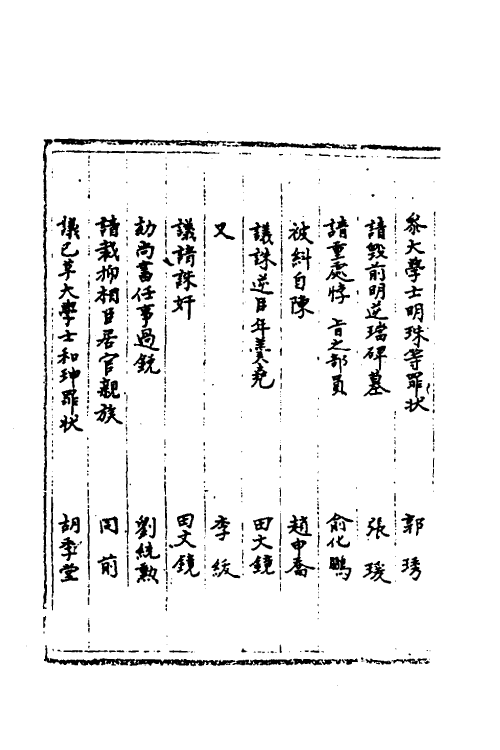 叅大學士明珠等罪狀　郭琇
請毀前明逆璫碑墓　張瑗
請重處悖旨之部員　俞化鵬
被糾自陳　趙申喬
議誅逆臣年羹堯　田文鏡
又　李紱
議請誅奸　田文鏡
劾尚書任事過銳　劉統勲
請裁抑相臣居官親族　同前
議已革大學士和珅罪狀　胡季堂